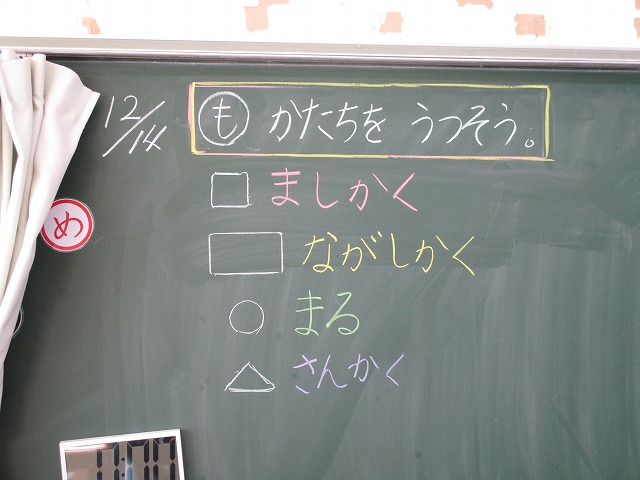 12/14
も かたちを うつそう。
ましかく
ながしかく
め
まる
さんかく